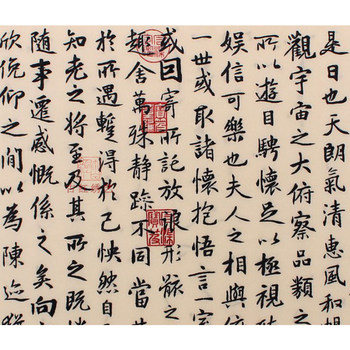 是日也天朗氣清惠風和
觀宇宙之大俯察品類之
所以遊目騁懷足以極視
娛信可樂也夫人之相與俯
一世或取諸懷抱悟言一室
或因寄所託放浪形骸之
趣舍萬殊靜躁不同當其
於所遇蹔得於己怏然自
知老之將至及其所之既
隨事遷感慨係之矣向之
欣俛仰之閒以為陳迹猶